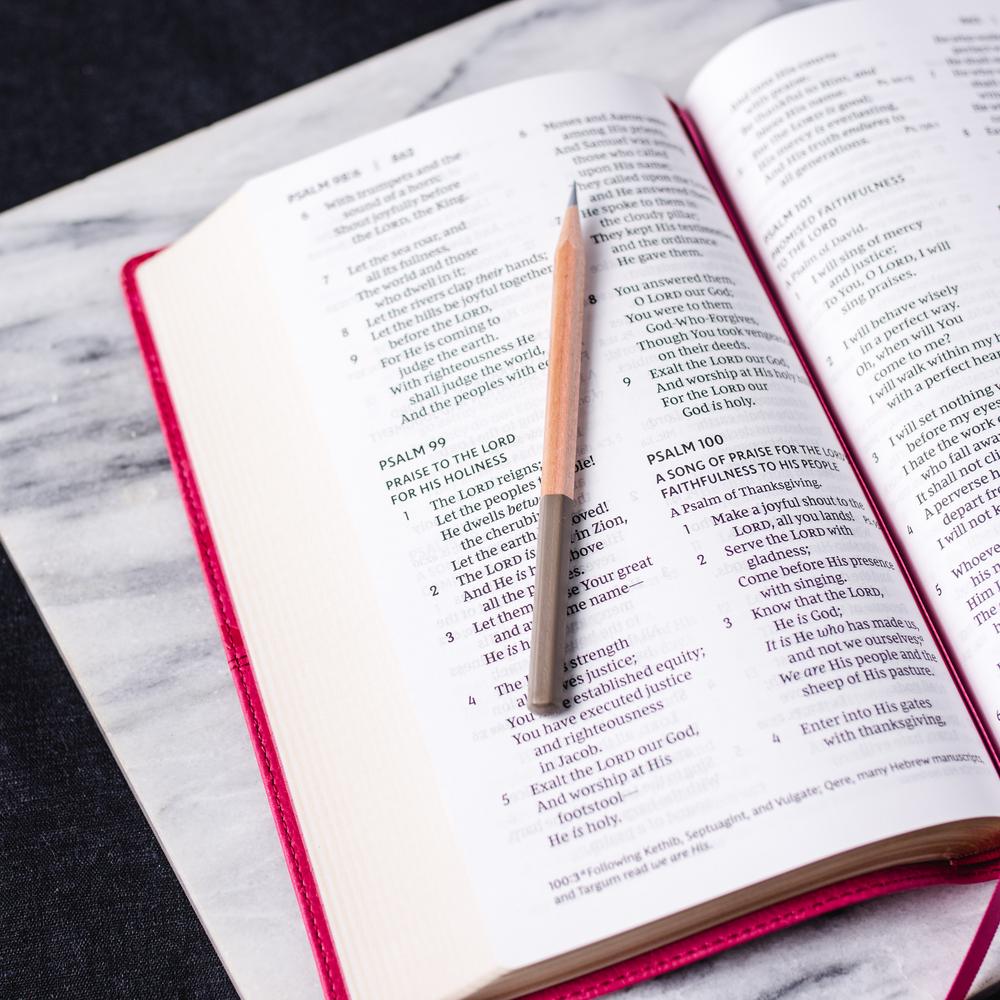 PSALM 98:6 | 562
6 With trumpets and the
sound of a horn;
Shout joyfully before
the LORD, the King.
7 Let the sea roar, and
all its fullness,
The world and those
who dwell in it;
8 Let the rivers clap their hands;
Let the hills be joyful together
before the LORD,
9 For He is coming to
judge the earth.
With righteousness He
shall judge the world,
And the peoples with
PSALM 99
PRAISE TO THE LORD
FOR HIS HOLINESS
1 The LORD reigns;
Let the peoples
He dwells
the cherubim
Let the earth
2 The LORD is in Zion,
And He is above
all the
3 Let them Your great
and name—
He is
4 The strength
You established equity;
You have executed justice
and righteousness
in Jacob.
5 Exalt the LORD our God,
And worship at His
footstool—
He is holy.
6 Moses and Aaron were
among His priests,
And Samuel was
those who called
upon His name;
They called upon the
and He answered
7 He spoke to them in
the cloudy pillar;
They kept His
and the ordinance
He gave them.
8 You answered them,
O LORD our God;
You were to them
God-Who-Forgives,
Though You took
on their deeds.
9 Exalt the LORD our God,
And worship at His holy
For the LORD our
God is holy.
PSALM 100
A SONG OF PRAISE FOR THE LORD'S
FAITHFULNESS TO HIS PEOPLE
A Psalm of Thanksgiving.
1 Make a joyful shout to the
LORD, all you lands!
2 Serve the LORD with
gladness;
Come before His presence
with singing.
3 Know that the LORD,
He is God;
It is He who has made us,
and not we ourselves;
We are His people and the
sheep of His pasture.
4 Enter into His gates
with thanksgiving,
100:3 Following Kethib, Septuagint, and Vulgate; Qere, many Hebrew manuscripts,
and Targum read we are His.
And into His courts
with praise.
Be thankful to Him, and
bless His name.
5 For the LORD is good;
His mercy is everlasting,
And His truth endures to
all generations.
PSALM 101
PROMISED FAITHFULNESS
TO THE LORD
A Psalm of David.
1 I will sing of mercy
and justice;
To You, O LORD, I will
sing praises.
2 I will behave wisely
in a perfect way.
Oh, when will You
come to me?
I will walk within my
with a perfect heart
3 I will set nothing
before my eyes
I hate the work
who fall away
It shall not
4 A perverse
depart
I will not
5 Whoever
his
Him
The